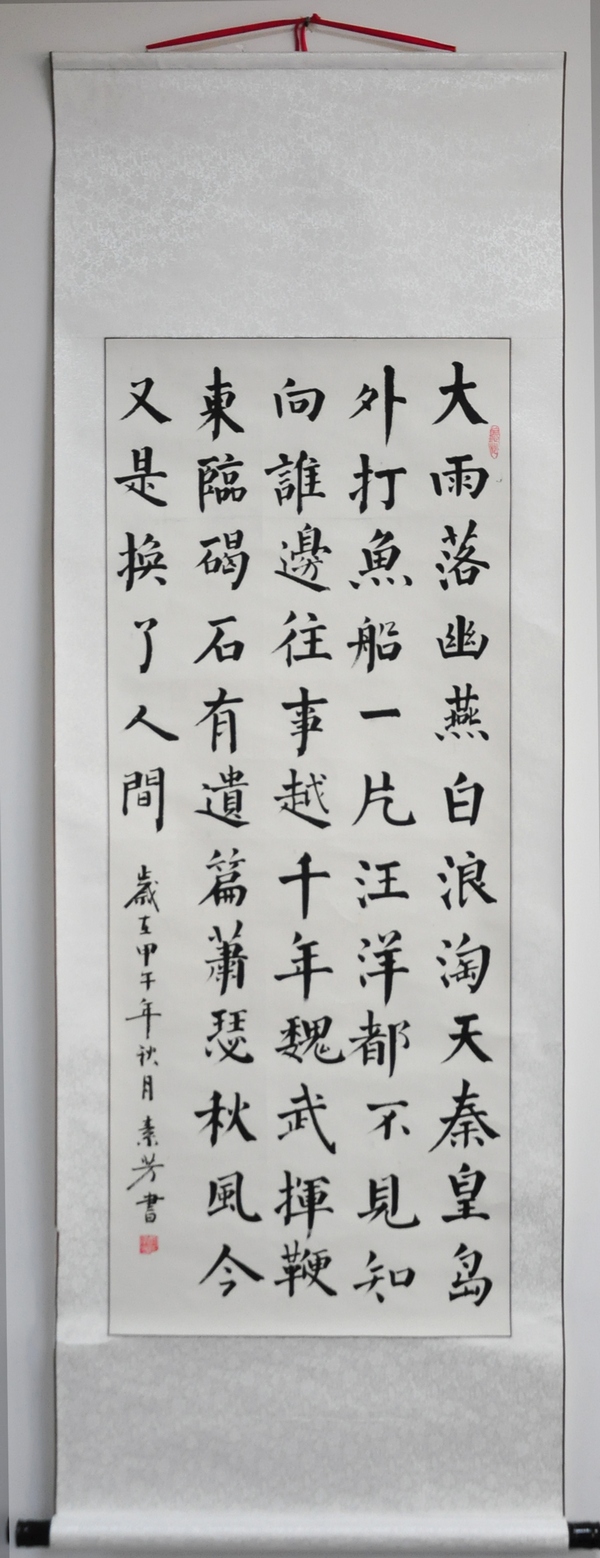 大雨落幽燕白浪淘天秦皇島
外打魚船一片汪洋都不見知
向誰邊往事越千年魏武揮鞭
東臨碣石有遺篇蕭瑟秋風今
又是換了人間
歲在甲午年秋月素芳書